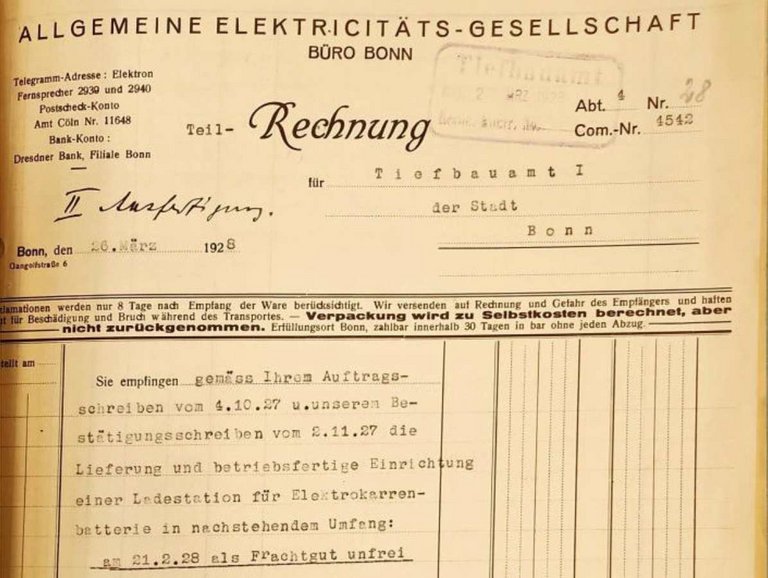 ALLGEMEINE ELEKTRICITÄTS-GESELLSCHAFT
BÜRO BONN
Telegramm-Adresse: Elektron
Fernsprecher 2939 und 2940
Postscheck-Konto
Amt Cöln Nr. 11648
Bank-Konto:
Dresdner Bank, Filiale Bonn
Tiefbauamt
Abt. 4 Nr. 28
Com.-Nr. 4542
Teil- Rechnung
für Tiefbauamt I
der Stadt
Bonn
II Ausfertigung.
Bonn, den 26.März 1928
Gangolfstraße 6
klamationen werden nur 8 Tage nach Empfang der Ware berücksichtigt. Wir versenden auf Rechnung und Gefahr des Empfängers und haften
ht für Beschädigung und Bruch während des Transportes. — Verpackung wird zu Selbstkosten berechnet, aber
nicht zurückgenommen. Erfüllungsort Bonn, zahlbar innerhalb 30 Tagen in bar ohne jeden Abzug.
tellt am
Sie empfingen gemäss Ihrem Auftrags-
schreiben vom 4.10.27 u.unserem Be-
stätigungsschreiben vom 2.11.27 die
Lieferung und betriebsfertige Einrichtung
einer Ladestation für Elektrokarren-
batterie in nachstehendem Umfang:
am 21.2.28 als Frachtgut unfrei